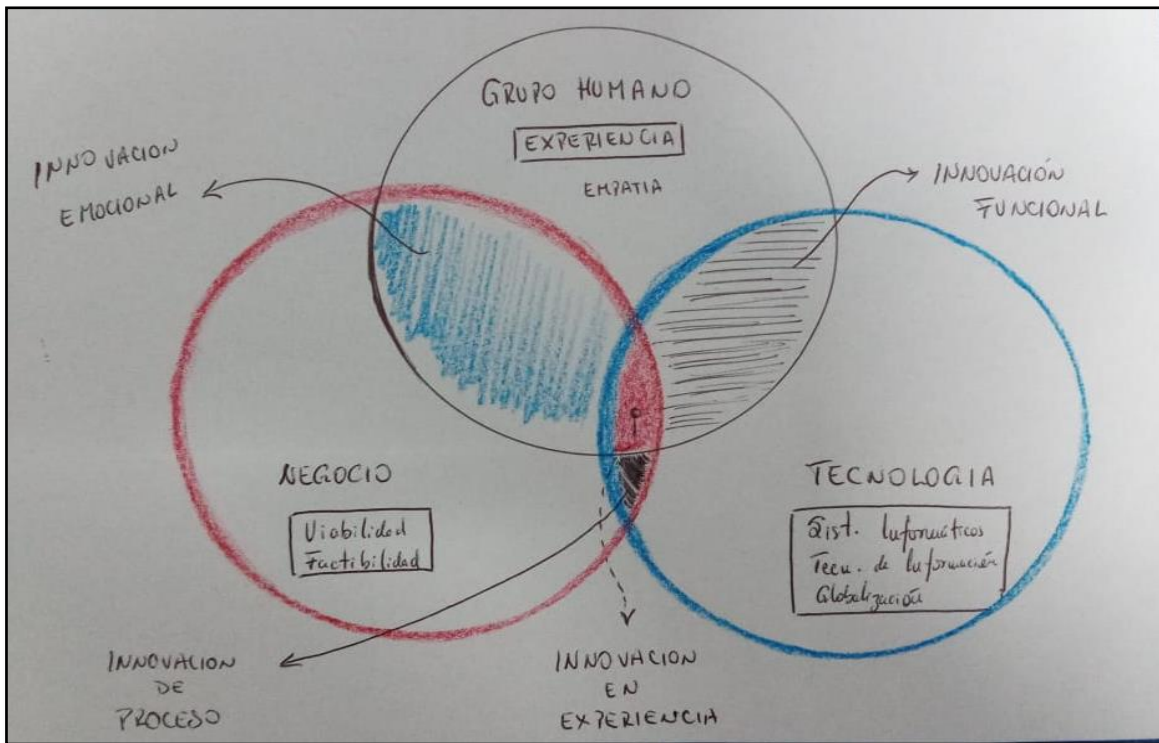 GRUPO HUMANO
EXPERIENCIA
EMPATIA
INNOVACION
EMOCIONAL
INNOVACIÓN
FUNCIONAL
NEGOCIO
Viabilidad
Factibilidad
TECNOLOGIA
Sist. Informáticos
Tecn. de Información
Globalización
INNOVACION
DE
PROCESO
INNOVACION
EN
EXPERIENCIA